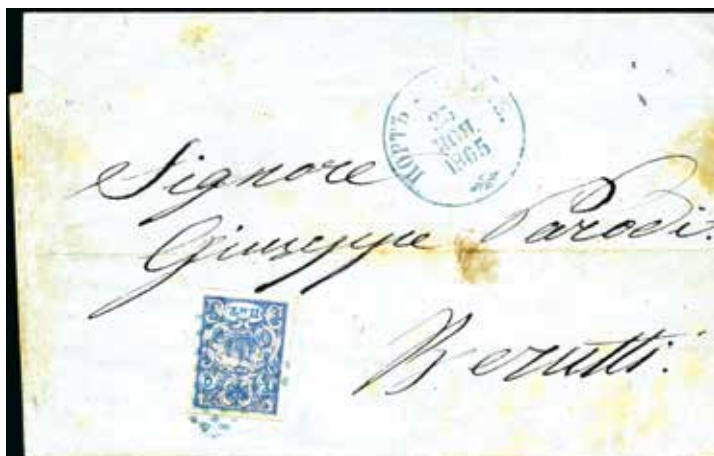 ПОРТЪ
25
1865
Signore
Giuseppe Parodi.
Berutti.